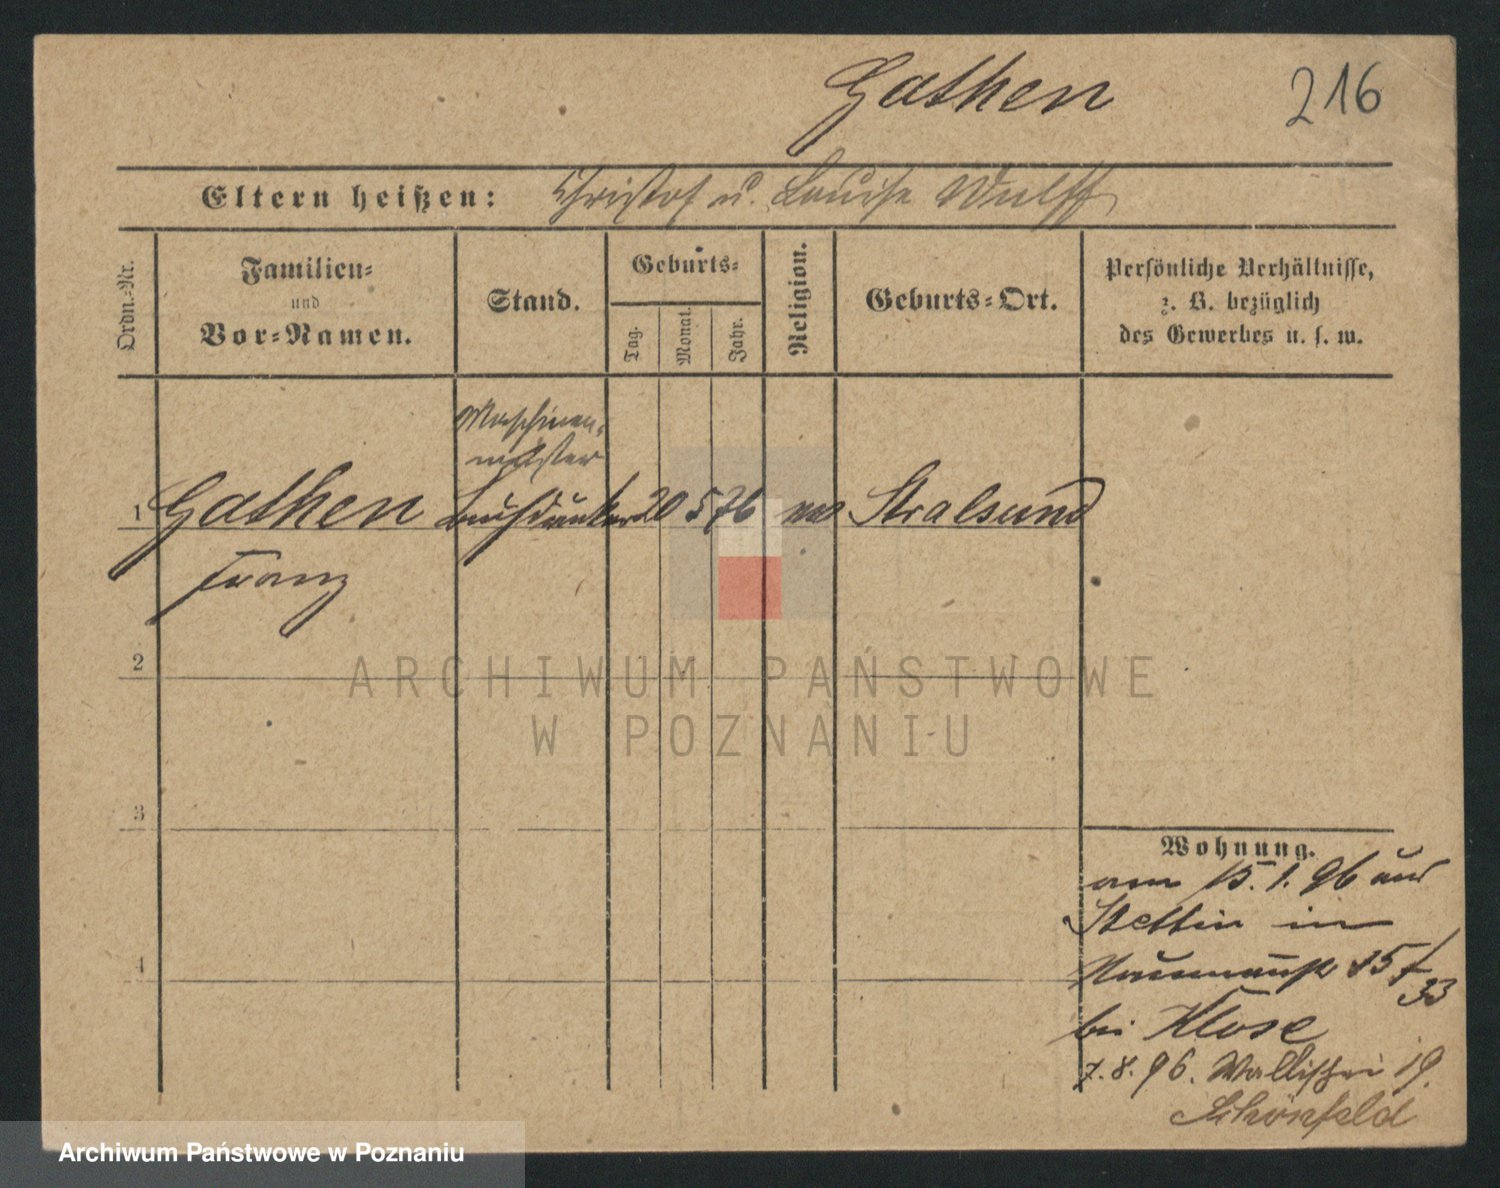 Gathen
216
Eltern heißen: Christof u. Louise Wulff
Ordn.-Nr.
Familien-
und
Vor-Namen.
Stand.
Geburts-
Tag.
Monat.
Jahr.
Religion.
Geburts-Ort.
Persönliche Verhältnisse,
z. B. bezüglich
des Gewerbes u. s. w.
Maschinen-
meister
1 Gathen Buchdrucker 20 5 76 Stralsund
Franz
2
3
4
Wohnung.
am 15.1.96 aus
Stettin in
15/
33
bei Klose
7.8.96. Wallischei 19.
Schönfeld
ARCHIWUM PAŃSTWOWE
W POZNANIU
Archiwum Państwowe w Poznaniu